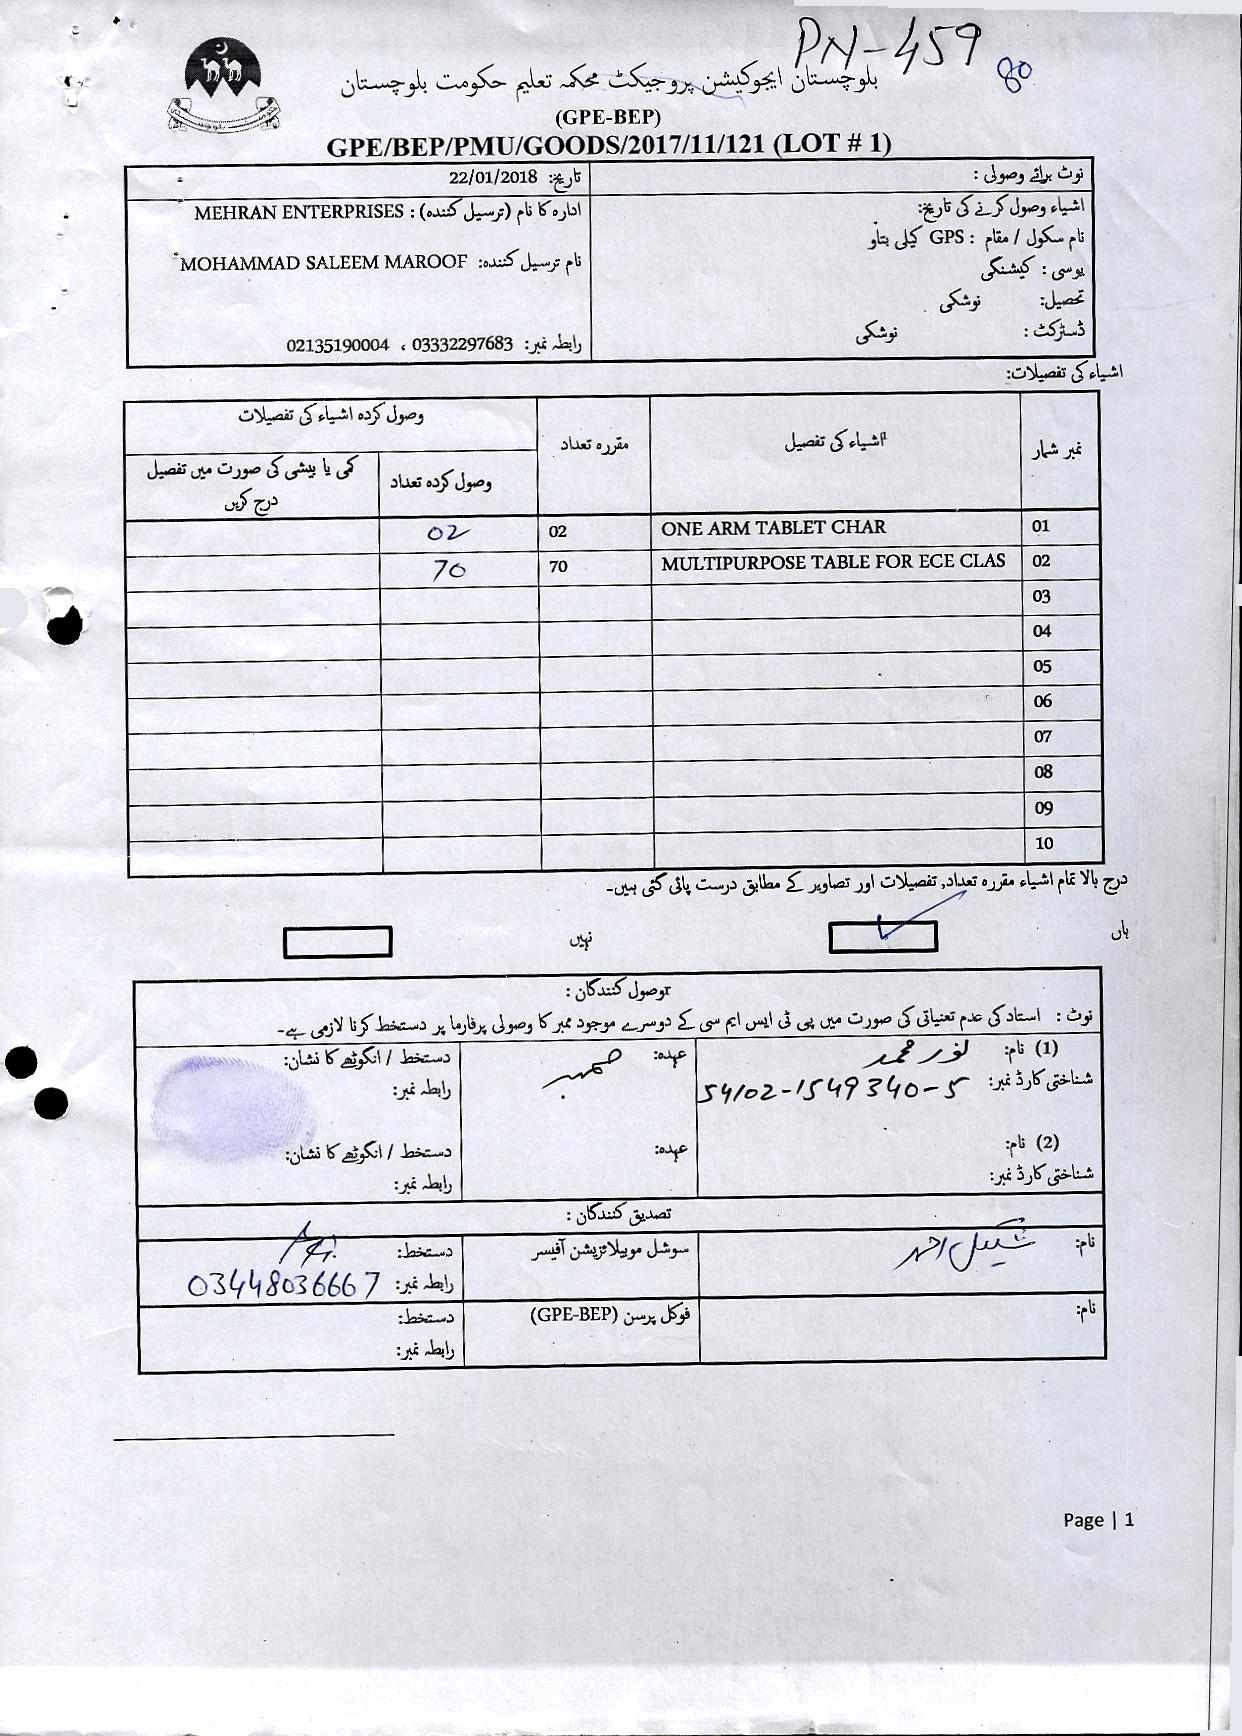 PN-459
80
بلوچستان ایجوکیشن پروجیکٹ محکمہ تعلیم حکومت بلوچستان
(GPE-BEP)
GPE/BEP/PMU/GOODS/2017/11/121 (LOT # 1)
نوٹ برائے وصولی :
تاریخ: 22/01/2018
اشیاء وصول کرنے کی تاریخ:
ادارہ کا نام (ترسیل کنندہ) : MEHRAN ENTERPRISES
نام سکول / مقام : GPS کیلی بتاو
نام ترسیل کنندہ: MOHAMMAD SALEEM MAROOF
یوسی : کیشنگی
تحصیل: نوشکی
ڈسٹرکٹ : نوشکی
رابطہ نمبر: 02135190004 ، 03332297683
اشیاء کی تفصیلات:
نمبر شمار اشیاء کی تفصیل مقررہ تعداد وصول کردہ اشیاء کی تفصیلات
وصول کردہ تعداد کمی یا بیشی کی صورت میں تفصیل درج کریں
01 ONE ARM TABLET CHAR 02 02
02 MULTIPURPOSE TABLE FOR ECE CLAS 70 70
03
04
05
06
07
08
09
10
درج بالا تمام اشیاء مقررہ تعداد, تفصیلات اور تصاویر کے مطابق درست پائی گئی ہیں۔
ہاں ✓ نہیں
وصول کنندگان :
نوٹ : استاد کی عدم تعنیاتی کی صورت میں پی ٹی ایس ایم سی کے دوسرے موجود ممبر کا وصولی پرفارما پر دستخط کرنا لازمی ہے۔
(1) نام: نور محمد عہدہ: ممبر دستخط / انگوٹھے کا نشان:
شناختی کارڈ نمبر: 54102-1549340-5 رابطہ نمبر:
(2) نام: عہدہ: دستخط / انگوٹھے کا نشان:
شناختی کارڈ نمبر: رابطہ نمبر:
تصدیق کنندگان :
نام: شکیل احمد سوشل موبیلائزیشن آفیسر دستخط:
رابطہ نمبر: 03448036667
نام: فوکل پرسن (GPE-BEP) دستخط:
رابطہ نمبر:
Page | 1